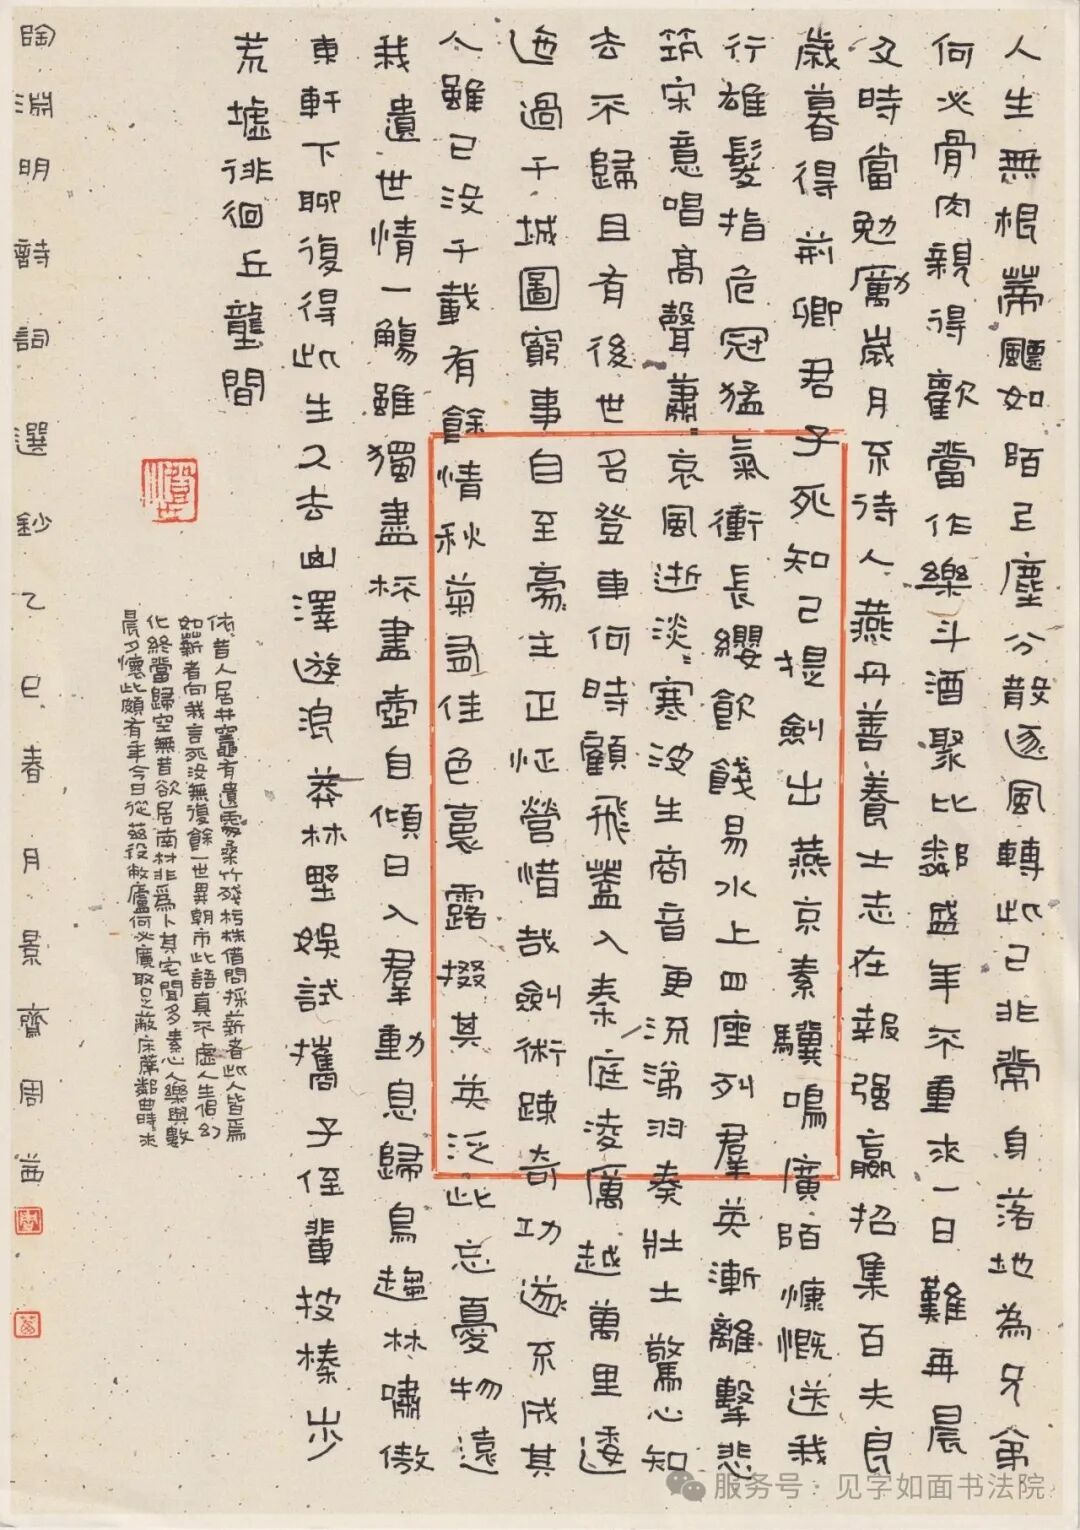 人生無根蒂飄如陌上塵分散逐風轉此已非常身落地為兄弟
何必骨肉親得歡當作樂斗酒聚比鄰盛年不重來一日難再晨
及時當勉勵歲月不待人燕丹善養士志在報強嬴招集百夫良
歲暮得荊卿君子死知己提劍出燕京素驥鳴廣陌慷慨送我
行雄髮指危冠猛氣衝長纓飲餞易水上四座列羣英漸離擊悲
筑宋意唱高聲蕭〻哀風逝淡〻寒波生商音更流涕羽奏壯士驚心知
去不歸且有後世名登車何時顧飛蓋入秦庭凌厲越萬里逶
迤過千城圖窮事自至豪主正怔營惜哉劍術疎奇功遂不成其
人雖已沒千載有餘情秋菊有佳色裛露掇其英泛此忘憂物遠
我遺世情一觴雖獨盡杯盡壺自傾日入羣動息歸鳥趨林嘯傲
東軒下聊復得此生久去山澤遊浪莽林野娛試攜子侄輩披榛步
荒墟徘徊丘壟間
依〻昔人居井竈有遺處桑竹殘朽株借問採薪者此人皆焉
如薪者向我言死沒無復餘一世異朝市此語真不虛人生似幻
化終當歸空無昔欲居南村非為卜其宅聞多素心人樂與數
晨夕懷此頗有年今日從茲役敝廬何必廣取足蔽床席鄰曲時〻來
陶淵明詩詞選鈔乙巳春月景齋周茜
服务号：见字如面书法院